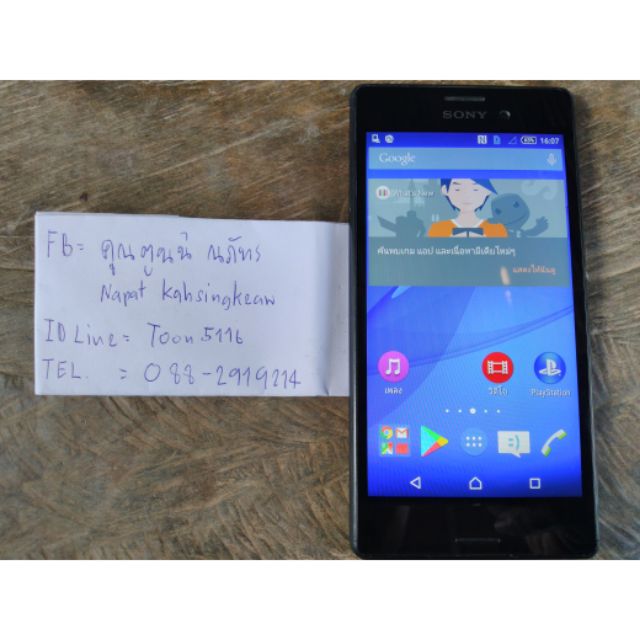 FB= คุณตูนน์ ณภัทร
Napat Kahsingkeaw
ID Line = Toon5116
TEL. = 088-2919214
SONY
16:07
Google
What's New
ค้นพบเกม แอป และเนื้อหามีเดียใหม่ๆ
แสดงให้ฉันดู
เพลง
วิดีโอ
PlayStation